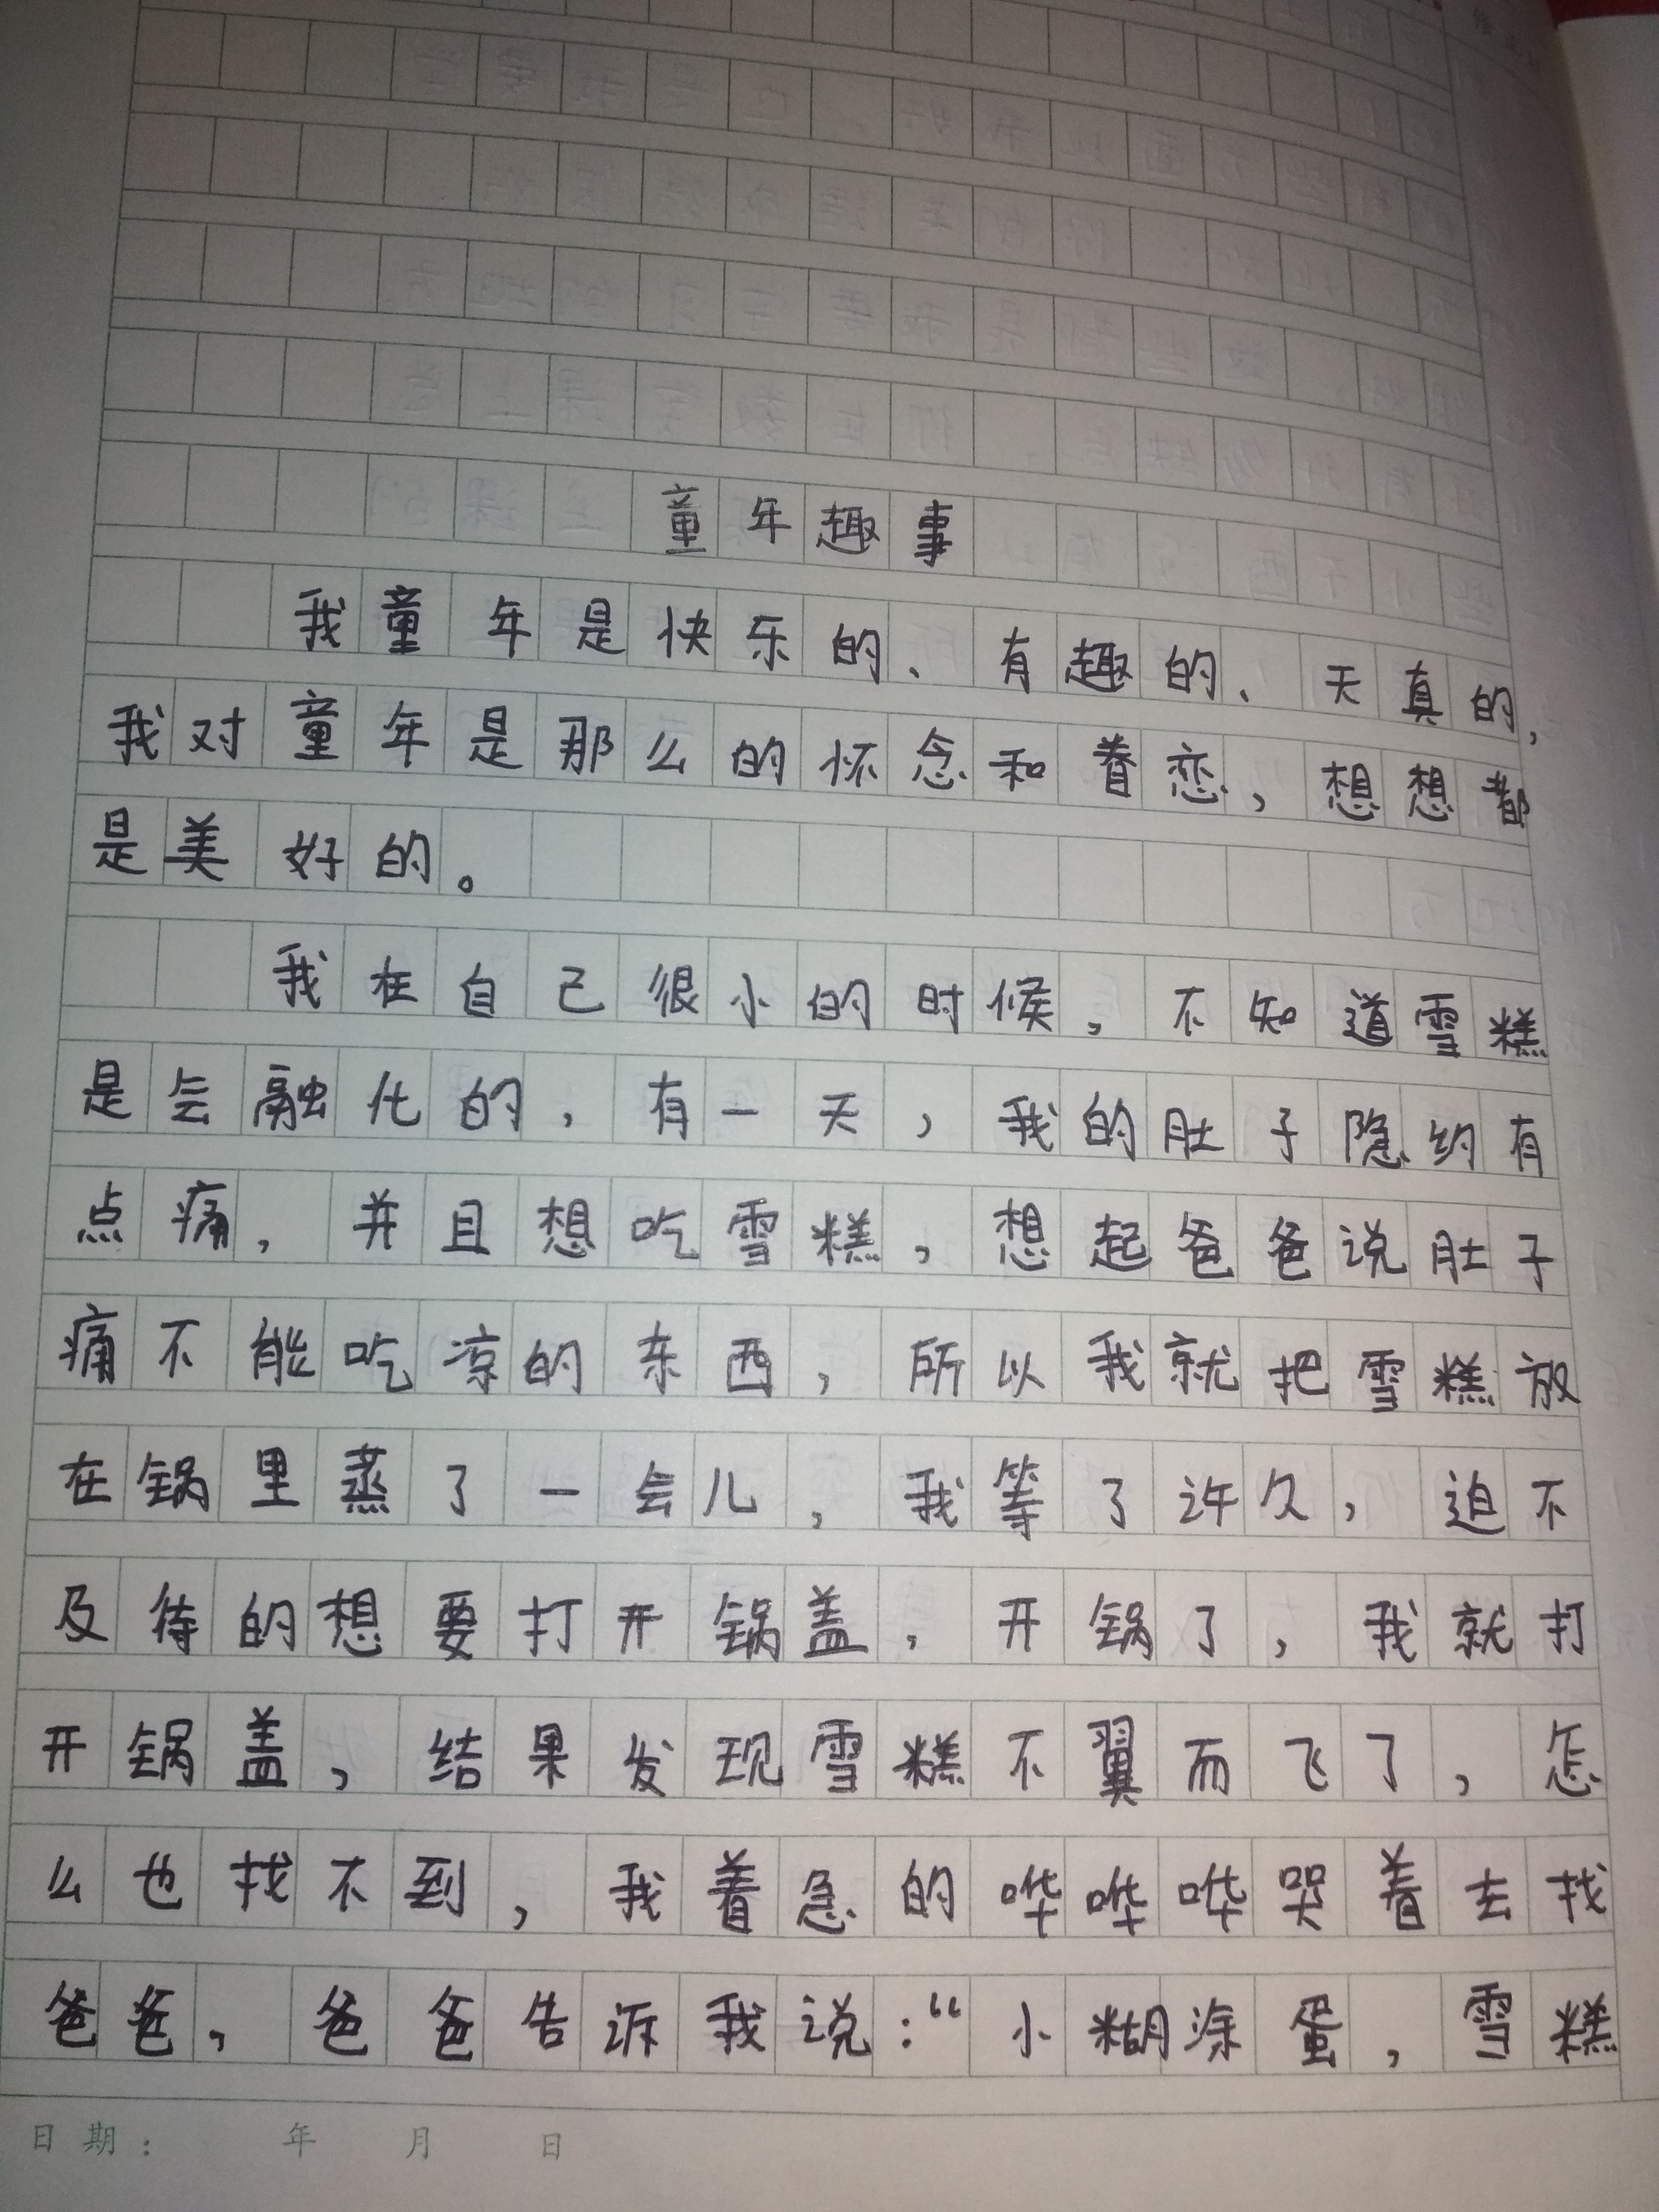 童年趣事
我童年是快乐的、有趣的、天真的,
我对童年是那么的怀念和眷恋,想想都
是美好的。
我在自己很小的时候,不知道雪糕
是会融化的,有一天,我的肚子隐约有
点痛,并且想吃雪糕,想起爸爸说肚子
痛不能吃凉的东西,所以我就把雪糕放
在锅里蒸了一会儿,我等了许久,迫不
及待的想要打开锅盖,开锅了,我就打
开锅盖,结果发现雪糕不翼而飞了,怎
么也找不到,我着急的哗哗哗哭着去找
爸爸,爸爸告诉我说:“小糊涂蛋,雪糕
日期: 年 月 日